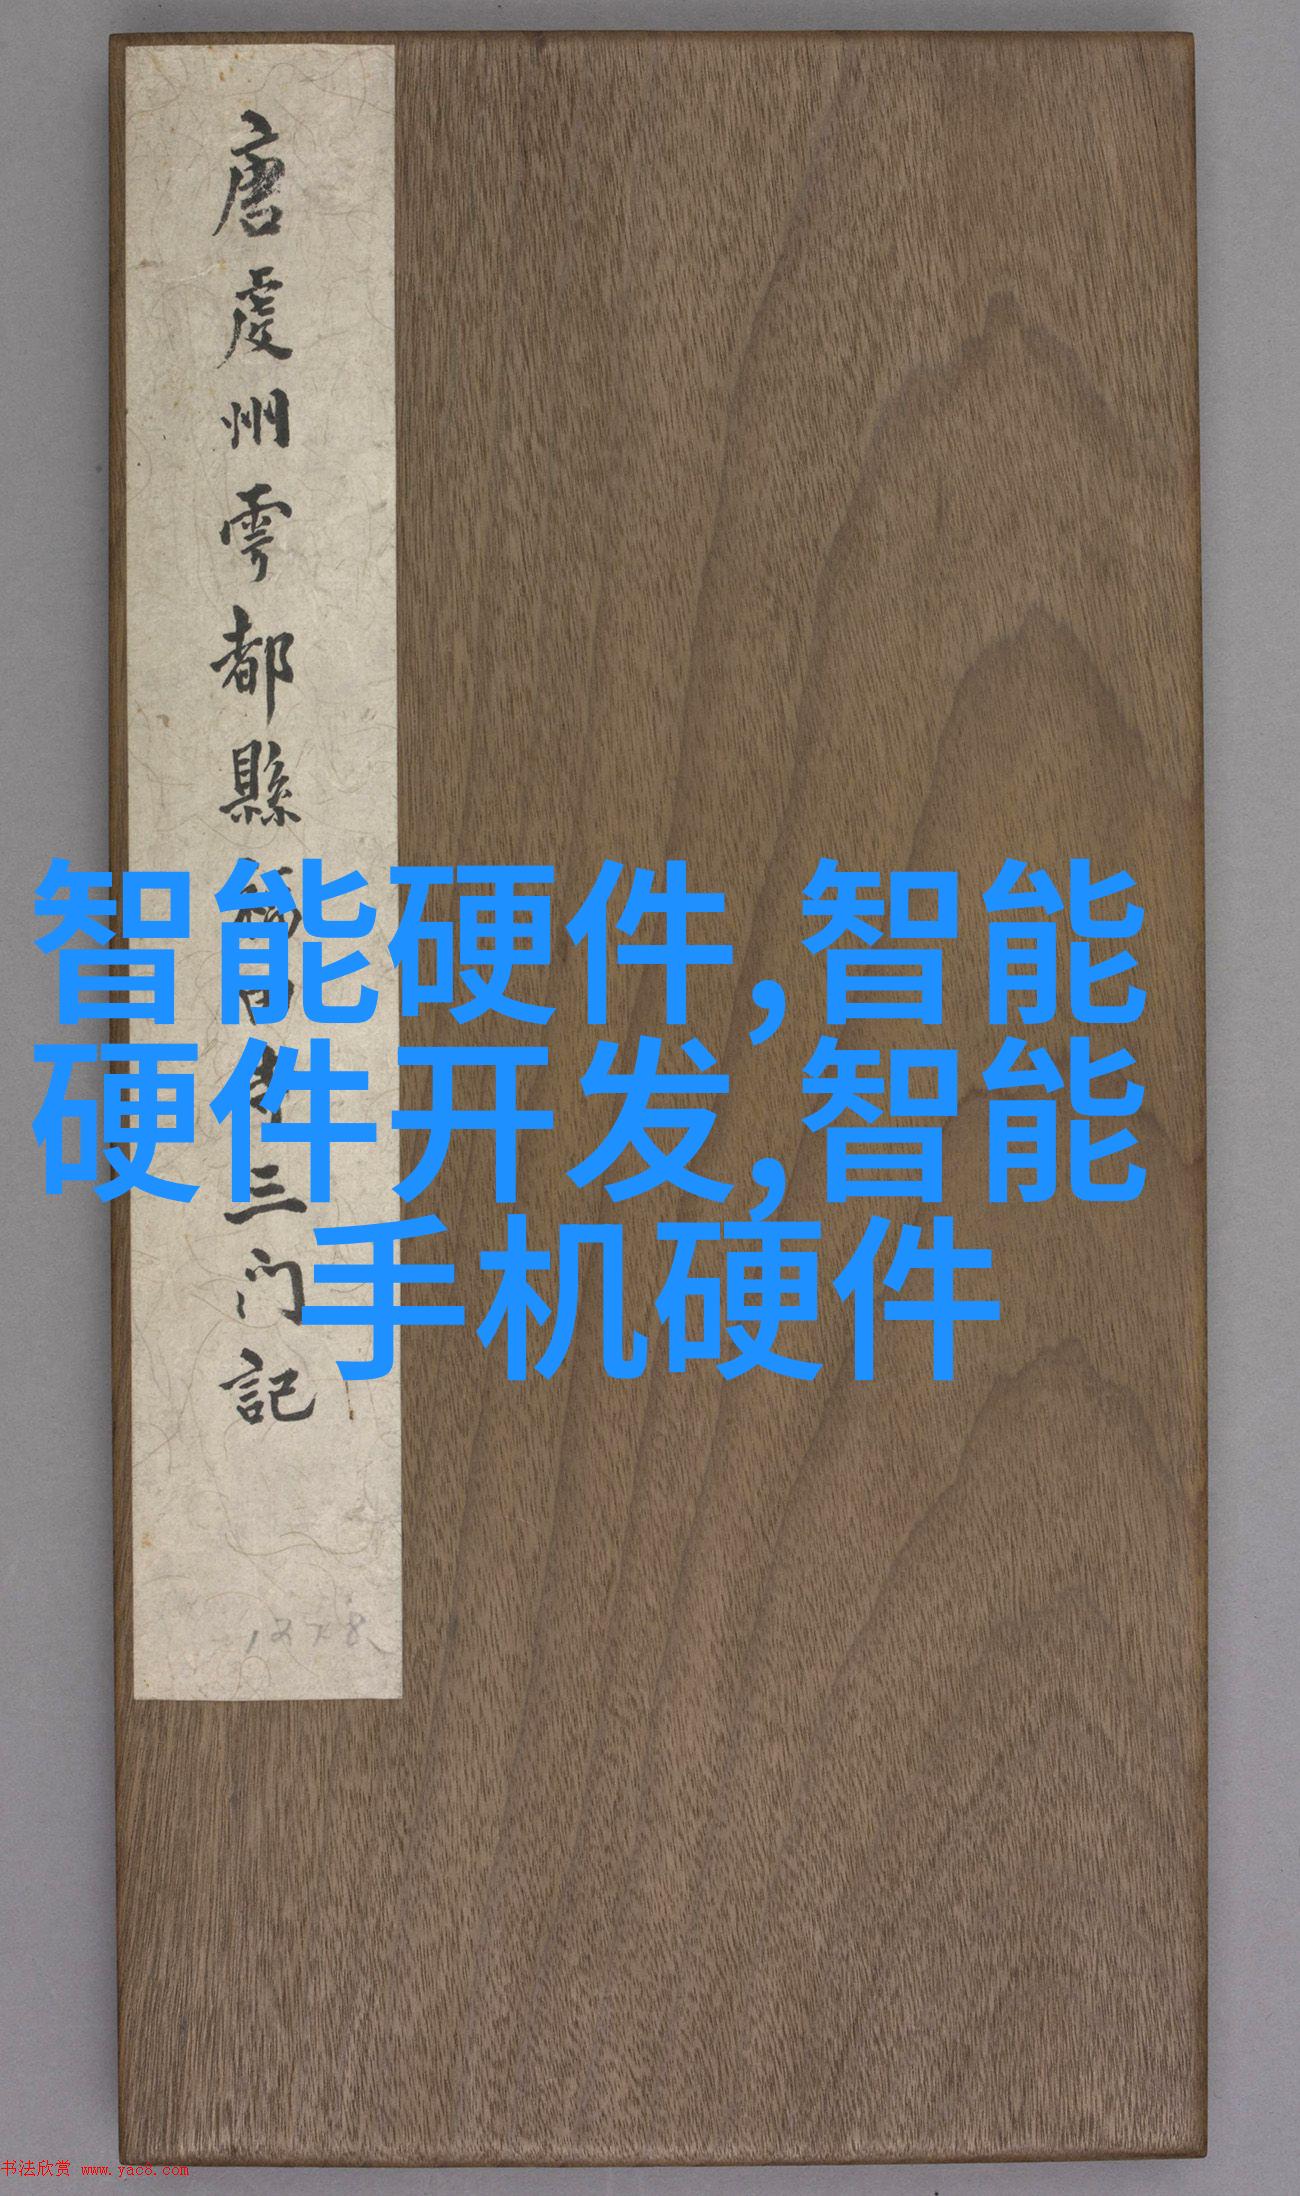 唐虔州雩都縣福田寺三门記
1278
智能硬件,智能
硬件开发,智能
手机硬件
书法欣赏 www.yac8.com